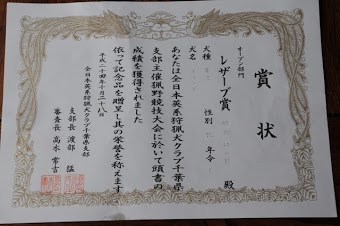 賞状
オープン部門
レザーブ賞
殿
犬種
性別
年令
犬名
あなたは全日本英系狩猟犬クラブ千葉県
支部主催猟野競技大会に於いて頭書の
成績を獲得されました
依って記念品を贈呈し其の栄誉を称えます
平成二十四年十月二十八日
全日本英系狩猟犬クラブ千葉県支部
支部長 渡部 猛
審査長 高水 常吉